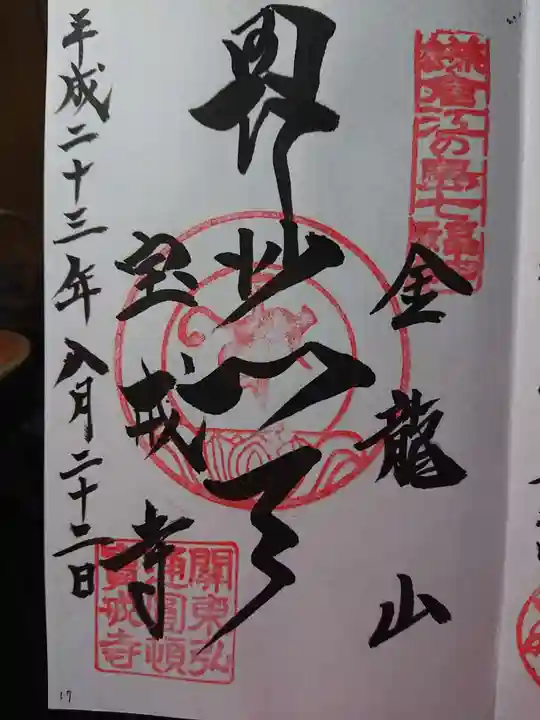 鎌倉江の島七福神
金龍山
毘沙門天
宝戒寺
平成二十三年八月二十二日
關東弘
通圓頓
寳戒寺
17